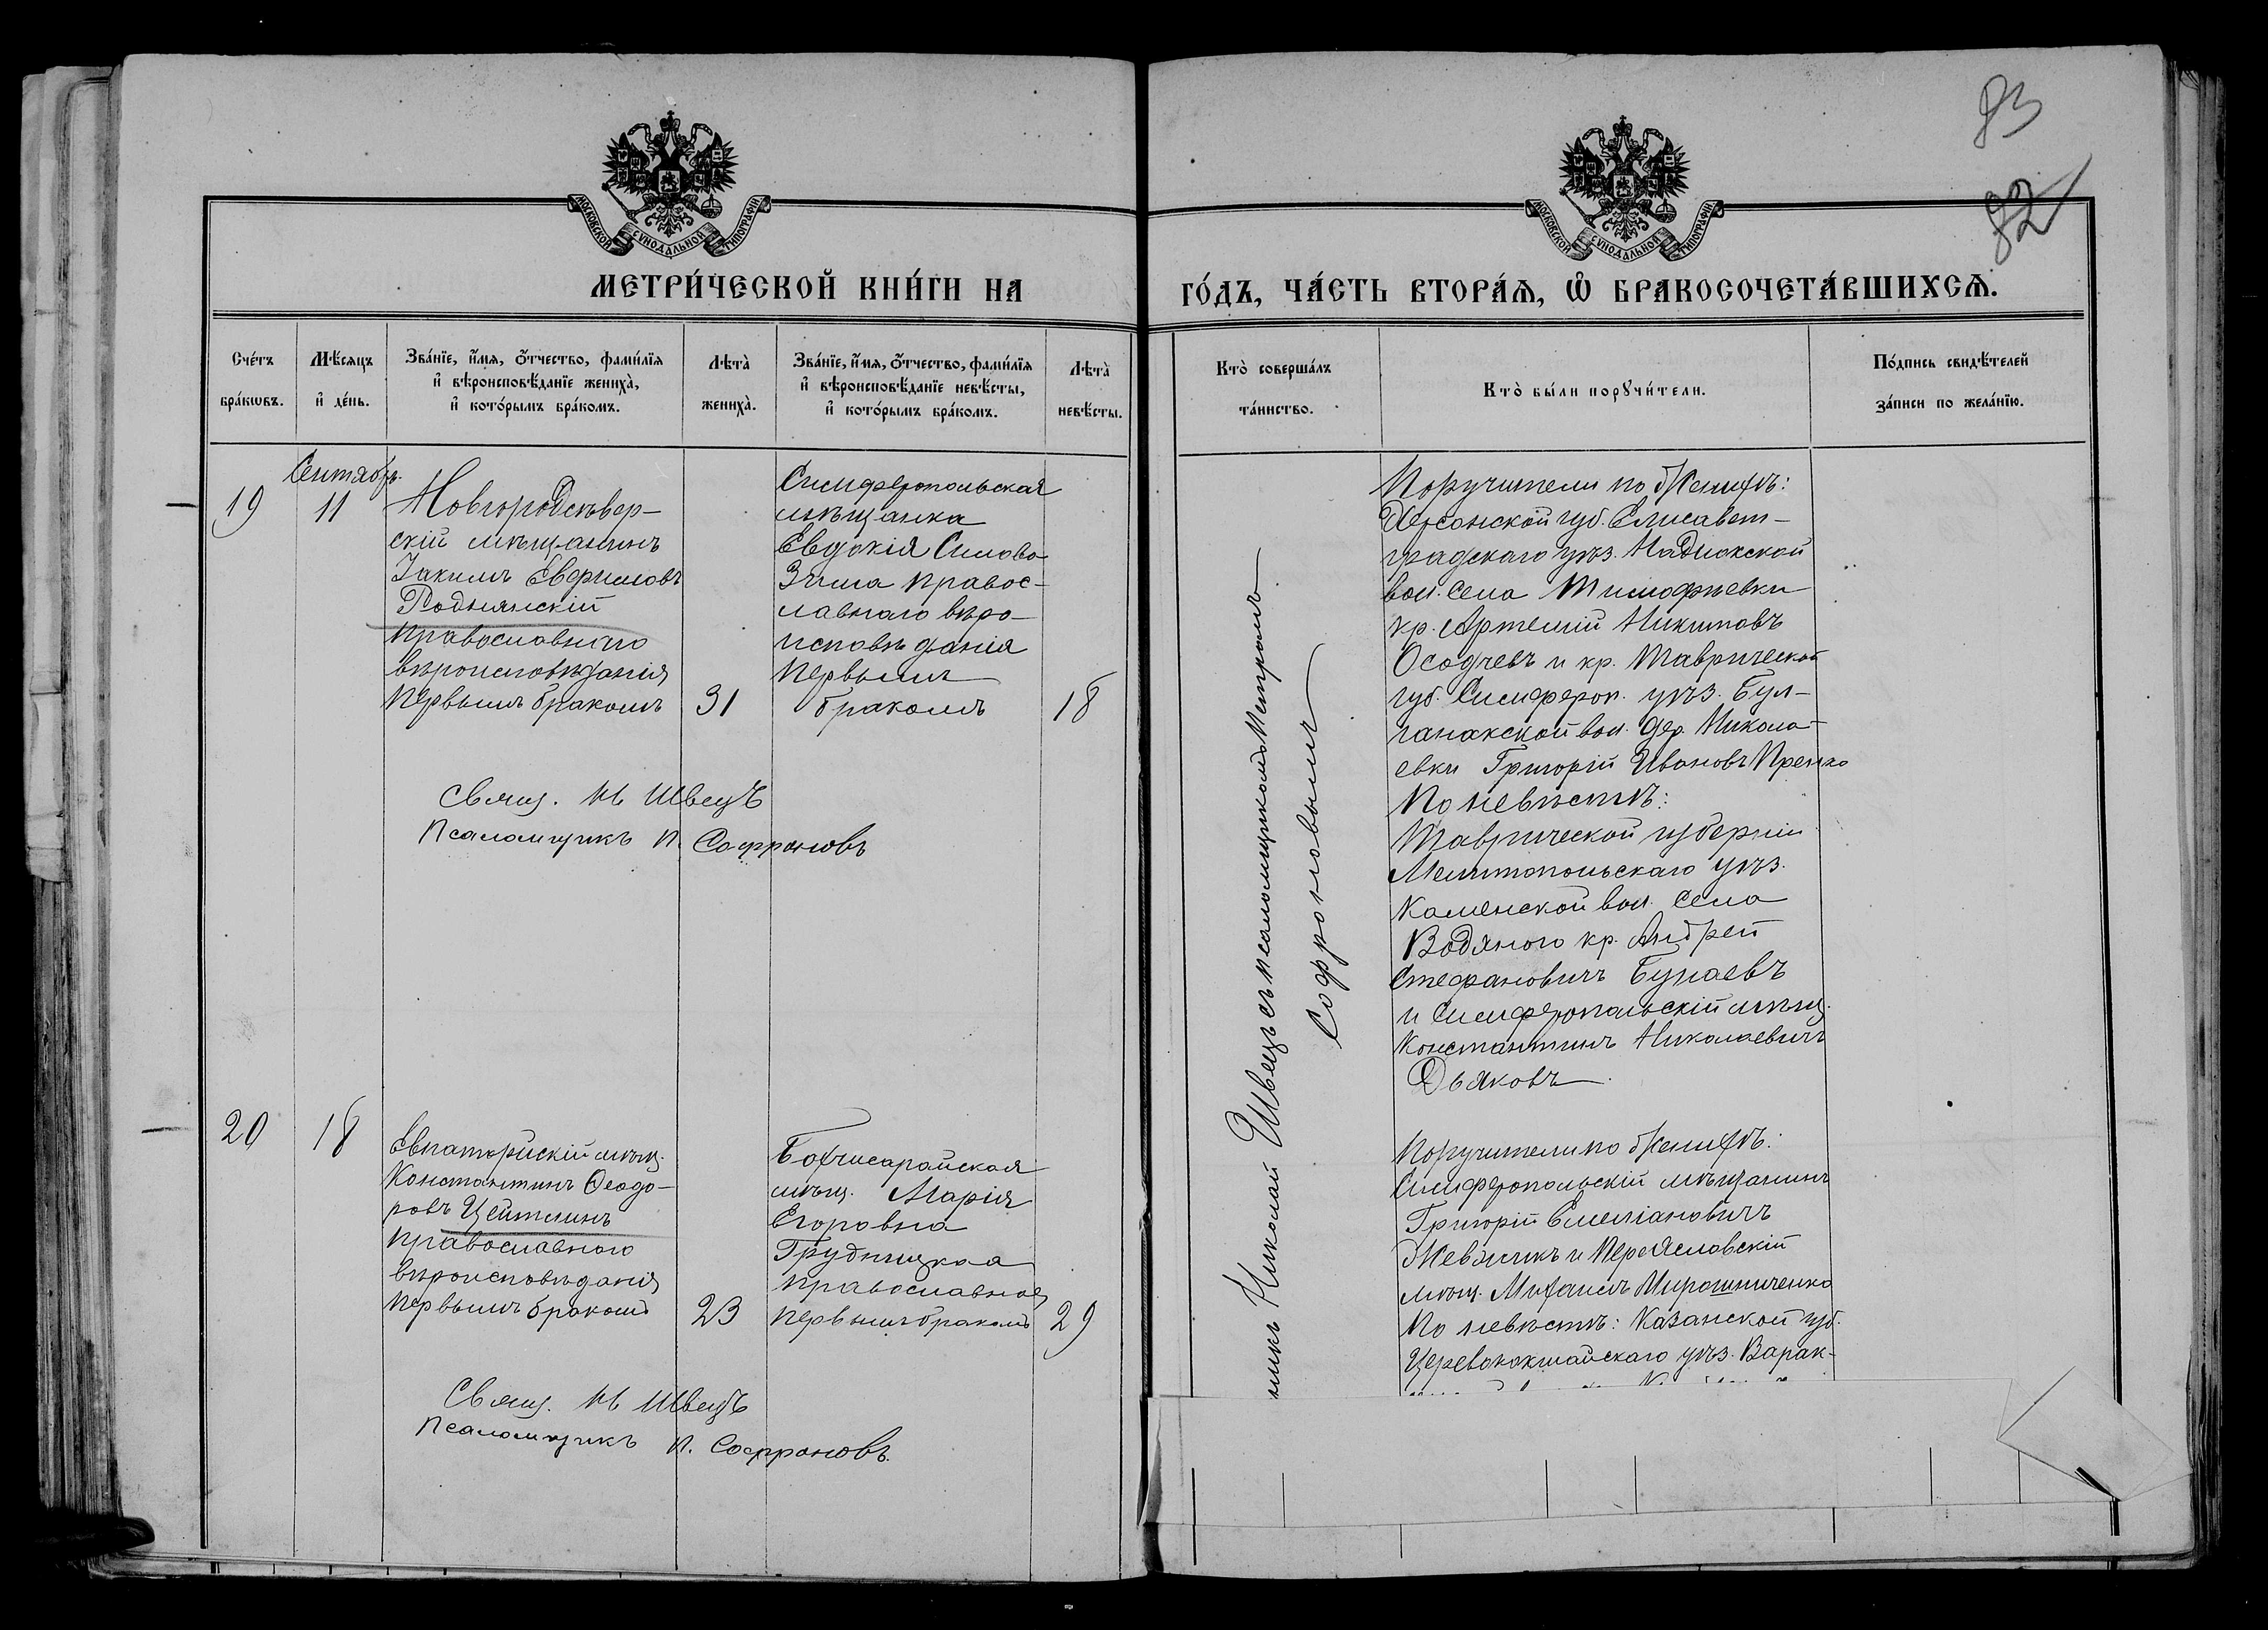 83
82
МОСКОВСКОЙ СѴНОДАЛЬНОЙ ТИПОГРАФІИ
МОСКОВСКОЙ СѴНОДАЛЬНОЙ ТИПОГРАФІИ
МЕТРИ́ЧЕСКОЙ КНИ́ГИ НА
ГО́ДЪ, ЧА́СТЬ ВТОРА́Ѧ, Ѡ҆ БРАКОСОЧЕТА́ВШИХСѦ.
Сче́тъ
бра́кѡвъ.
Мѣ́сѧцъ
и҆ де́нь.
Зва́нїе, и҆́мѧ, ѻ҆́тчество, фами́лїѧ
и҆ вѣроисповѣ́данїе жениха̀,
и҆ кото́рымъ бра́комъ.
Лѣта̀
жениха̀.
Зва́нїе, и҆́мѧ, ѻ҆́тчество, фами́лїѧ
и҆ вѣроисповѣ́данїе невѣ́сты,
и҆ кото́рымъ бра́комъ.
Лѣта̀
невѣ́сты.
Кто̀ соверша́лъ
та́инство.
Кто̀ бы́ли порꙋчи́тели.
По́дпись свидѣ́телей
за́писи по жела́нїю.
Сентябрь
19
11
Новгородсѣвер-
скій мѣщанинъ
Іакимъ Евфимовъ
Роднянскій
православнаго
вѣроисповѣданія
первымъ бракомъ
31
Симферопольская
мѣщанка
Евдокія Силова
Зчила правос-
лавнаго вѣро-
исповѣданія
первымъ
бракомъ
18
Свящ. Н. Швецъ
Псаломщикъ П. Софроновъ
никъ Николай Швецъ съ псаломщикомъ Митрофаномъ
Софроновымъ
Поручители по женихѣ:
Херсонской губ. Елисавет-
градскаго уѣз. Надлакской
вол. села Тимофѣевки
кр. Артемій Никитовъ
Осадчевъ и кр. Таврической
губ. Симфероп. уѣз. Бул-
ганакской вол. дер. Никола-
евки Григорій Ивановъ
По невѣстѣ:
Таврической губерніи
Мелитопольскаго уѣз.
Каменской вол. села
Водяного кр. Андрей
Стефановичъ Бунаевъ
и Симферопольскій мѣщ.
Константинъ Николаевичъ
Дьяковъ.
20
18
Евпаторійскій мѣщ.
Константинъ Ѳеодо-
ровъ Цейтлинъ
православнаго
вѣроисповѣданія
первымъ бракомъ
23
Бахчисарайская
мѣщ. Марія
Егоровна
Грудницкая
православная
первымъ бракомъ
29
Свящ. Н. Швецъ
Псаломщикъ П. Софроновъ.
Поручители по женихѣ:
Симферопольскій мѣщанинъ
Григорій Емеліановичъ
и Переяславскій
мѣщ. Михаилъ Мирошниченко
По невѣстѣ: Казанской губ.
Царевококшайскаго уѣз. Варак-